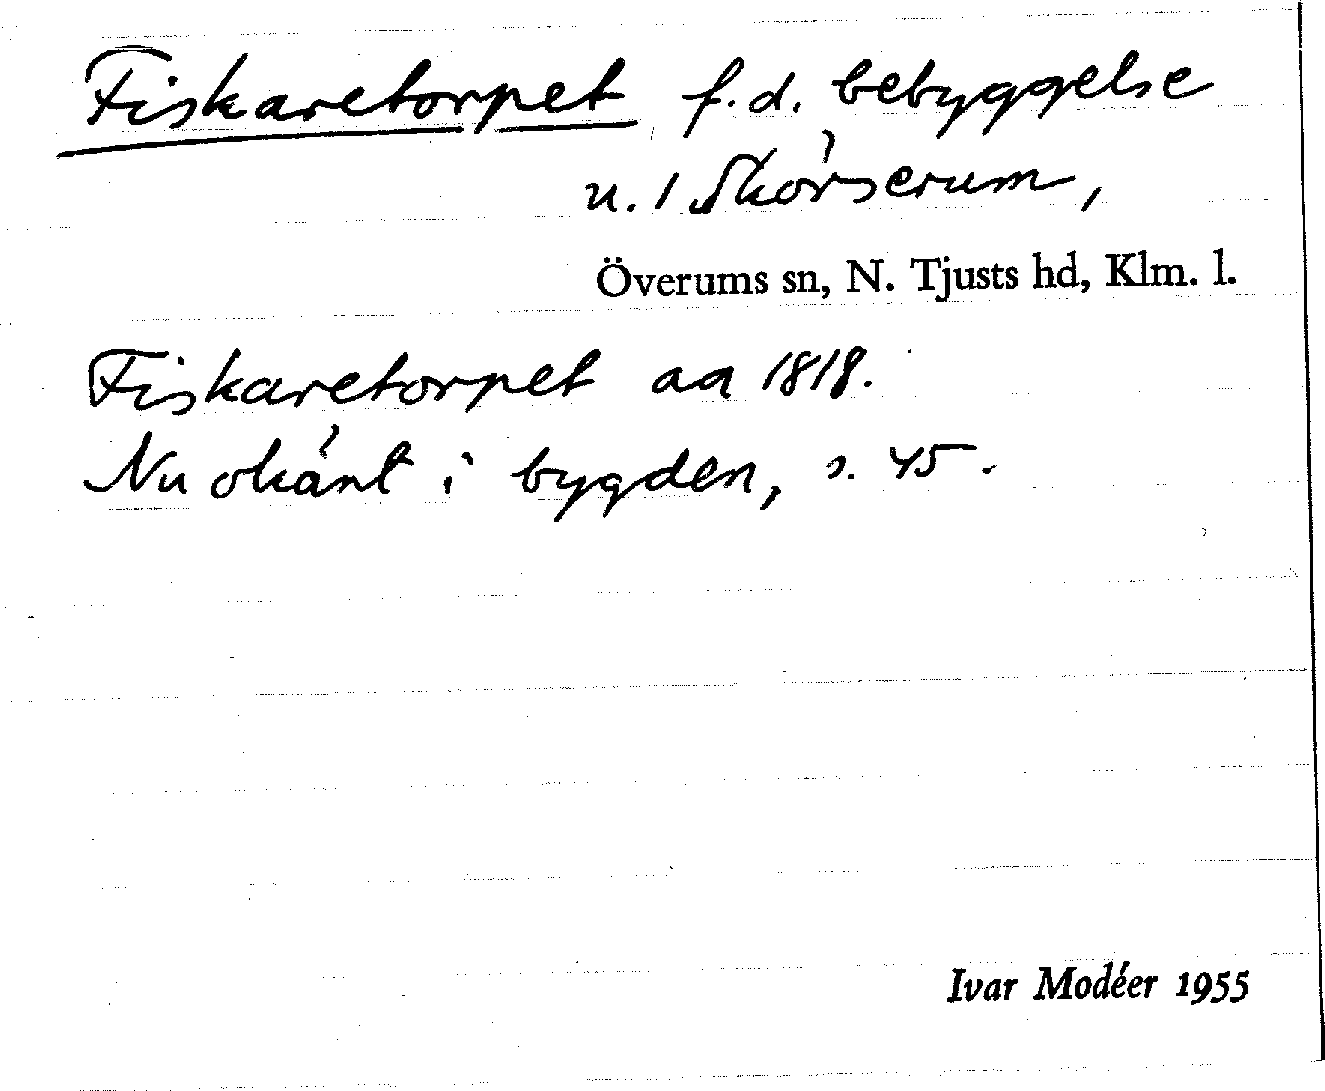 Fiskaretorpet f.d. bebyggelse
u. 1 Skörserum,
Överums sn, N. Tjusts hd, Klm. l.
Fiskaretorpet aa 1818.
Nu okänt i bygden, s. 45.
Ivar Modéer 1955